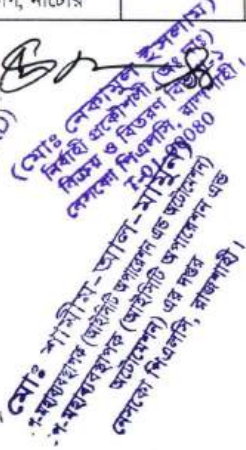 (মোঃ নেকামুল ইসলাম)
নির্বাহী প্রকৌশলী (অঃ দাঃ)
বিক্রয় ও বিতরণ বিভাগ
নেসকো পিএলসি, রাজশাহী।
(মোঃ শামীম-আল-মামুন)
উপ-মহাব্যবস্থাপক (আইসিটি অপারেশন এন্ড অটোমেশন)
উপ-মহাব্যবস্থাপক (আইসিটি অপারেশন এন্ড
অটোমেশন) এর দপ্তর
নেসকো পিএলসি, রাজশাহী।